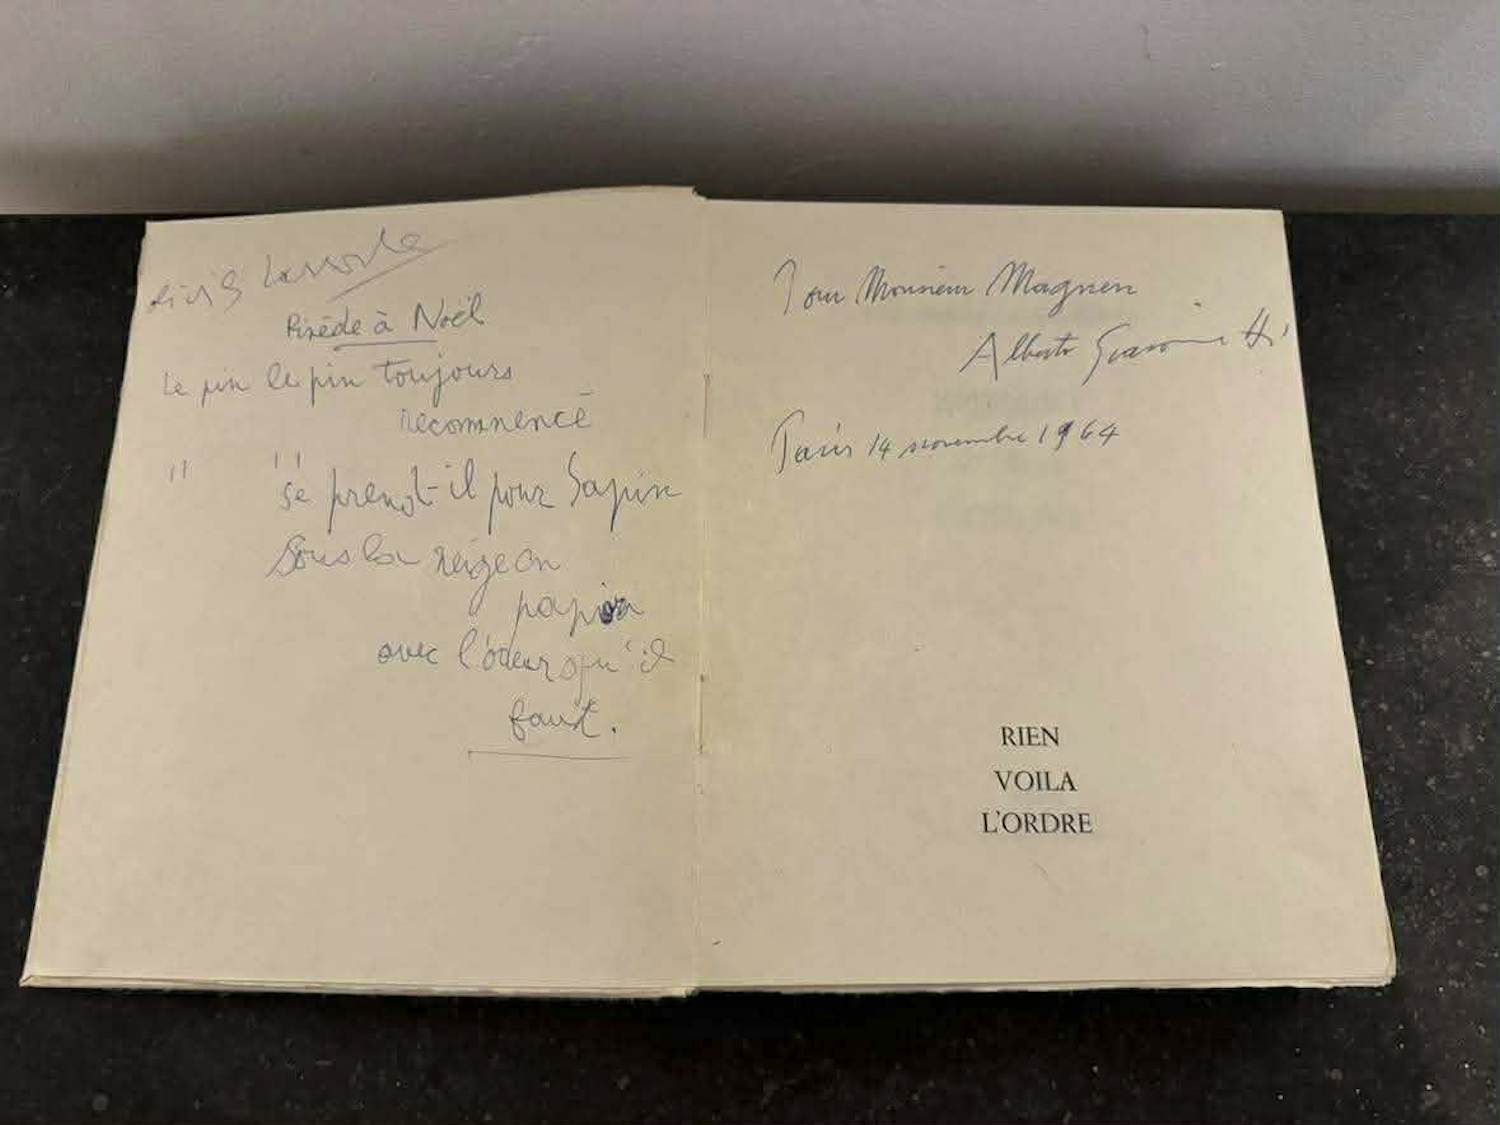 Pinède à Noël
Le pin le pin toujours
recommencé
" "
se prend-il pour Sapin
Sous la neige en
papier
avec l'odeur qu'il
faut.
Pour Monsieur Magnen
Alberto Giacometti
Paris 14 novembre 1964
RIEN
VOILA
L'ORDRE